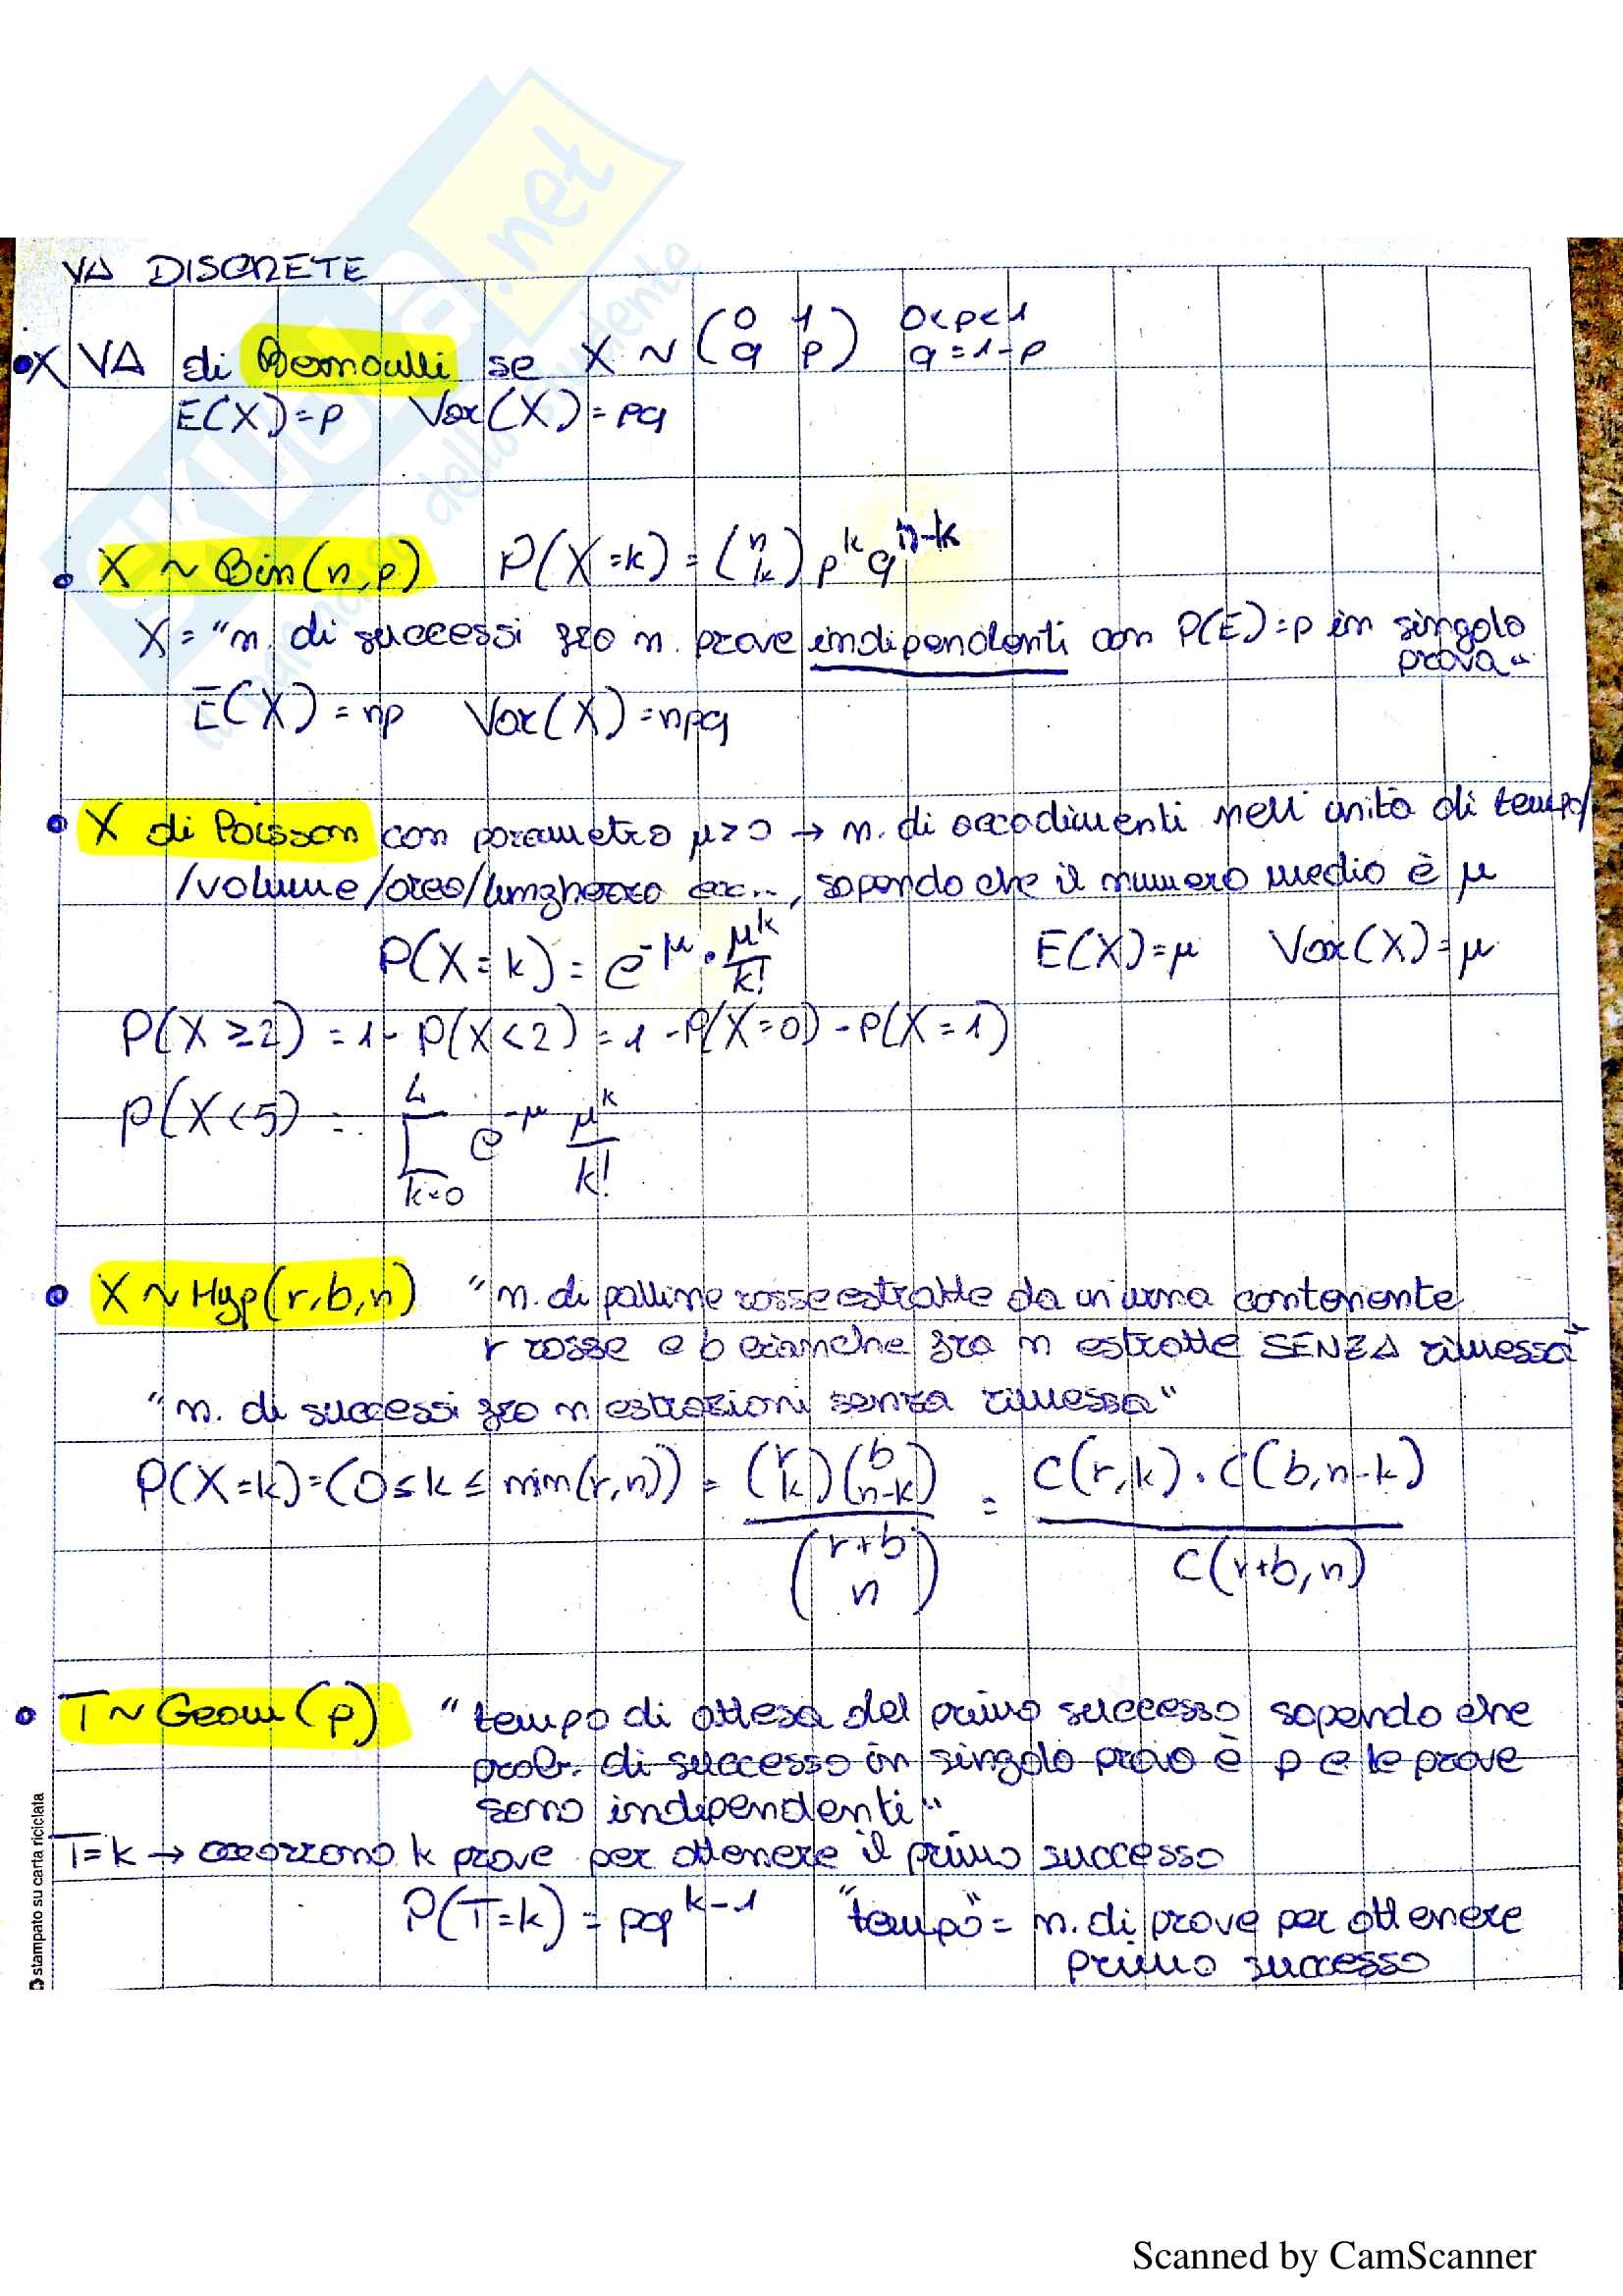 VA DISCRETE
• X VA di Bernoulli se X ~ (0 1 / q p) 0<p<1 q=1-p
E(X)=p Var(X)=pq
• X ~ Bin(n,p) P(X=k) = (n k) p^k q^n-k
X = "n. di successi fra n. prove indipendenti con P(E)=p in singola
prova"
E(X)=np Var(X)=npq
• X di Poisson con parametro μ>0 → n. di accadimenti nell'unità di tempo/
/volume/area/lunghezza ecc.., sapendo che il numero medio è μ
P(X=k) = e^-μ · μ^k/k! E(X)=μ Var(X)=μ
P(X≥2) = 1-P(X<2) = 1-P(X=0)-P(X=1)
P(X<5) = Σ k=0 4 e^-μ μ^k/k!
• X~Hyp(r,b,n) "n. di palline rosse estratte da un urna contenente
r rosse e b bianche fra n estratte SENZA rimessa"
"n. di successi fra n estrazioni senza rimessa"
P(X=k)=(0≤k≤min(r,n)) = (r k)(b n-k) / (r+b n) = C(r,k)·C(b,n-k) / C(r+b,n)
• T~Geom(p) "tempo di attesa del primo successo sapendo che
prob. di successo in singola prova è p e le prove
sono indipendenti"
T=k → occorrono k prove per ottenere il primo successo
P(T=k) = pq^k-1 "tempo" = n. di prove per ottenere
primo successo
stampato su carta riciclata
SKUOLA.net
Scanned by CamScanner